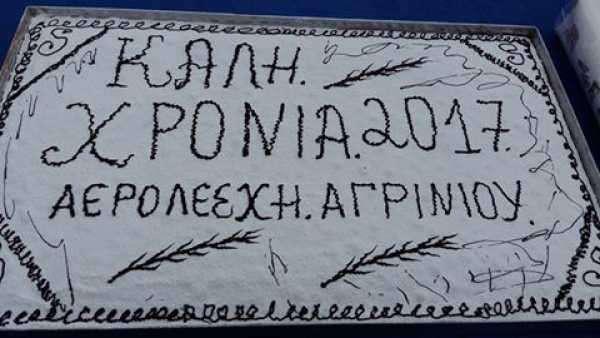 ΚΑΛΗ.
ΧΡΟΝΙΑ.2017.
ΑΕΡΟΛΕΣΧΗ.ΑΓΡΙΝΙΟΥ.